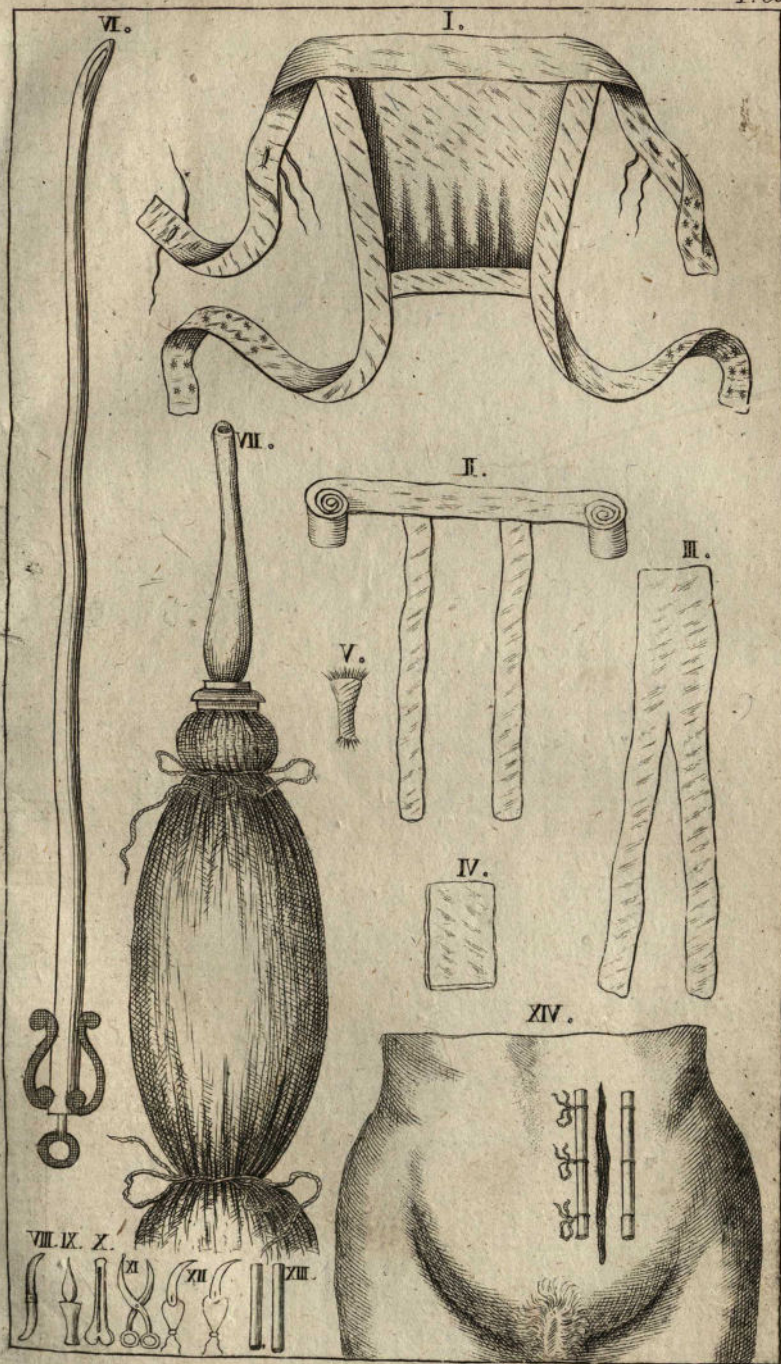 VI.
I.
VII.
II.
III.
V.
IV.
XIV.
VIII. IX. X. XI XII XIII.